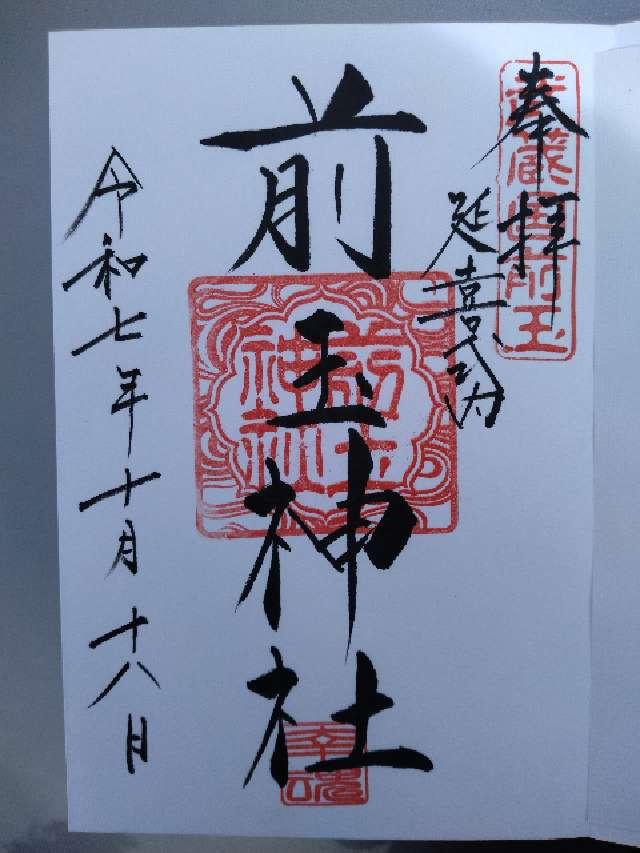 奉拝
武蔵國前玉
延喜式内
前玉神社
前玉神社
幸魂
令和七年十月十八日